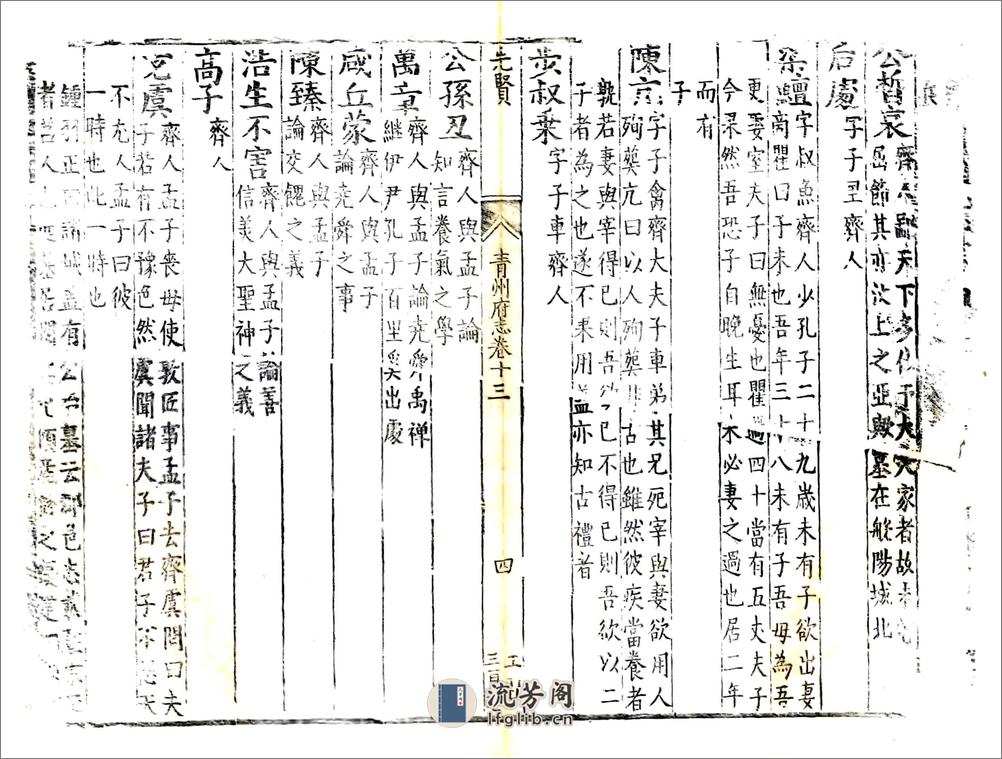 公晳哀齊人鄙天下多仕于大夫家者故未
屈節其亦汶上之亞歟墓在般陽城北
后處字子里齊人
梁鱣字叔魚齊人少孔子二十九歲未有子欲出妻
商瞿曰子未也吾年三十八未有子吾母為吾
更娶室夫子曰無憂也瞿過四十當有五丈夫子
今果然吾恐子自晚生耳未必妻之過也居二年
而有
子
陳亢字子禽齊大夫子車弟其兄死宰與妻欲用人
殉葬亢曰以人殉葬非古也雖然彼疾當養者
孰若妻與宰得已則吾欲已不得已則吾欲以二
子者為之也遂不果用蓋亦知古禮者
步叔乗字子車齊人
先賢
青州府志卷十三
四
三百
公孫丑齊人與孟子論
知言養氣之學
萬章齊人與孟子論堯舜禹禅
繼伊尹孔子百里奚出處
咸丘蒙齊人與孟子
論堯舜之事
陳臻齊人與孟子
論交餽之義
浩生不害齊人與孟子論善
信美大聖神之義
高子齊人
充虞齊人孟子喪母使敦匠事孟子去齊虞問曰夫
子若有不豫色然虞聞諸夫子曰君子不怨天
不尤人孟子曰彼
一時也此一時也
鍾羽正曰諸城盖有公冶墓云郡邑志載
者莒人
流芳阁
lfglib.cn